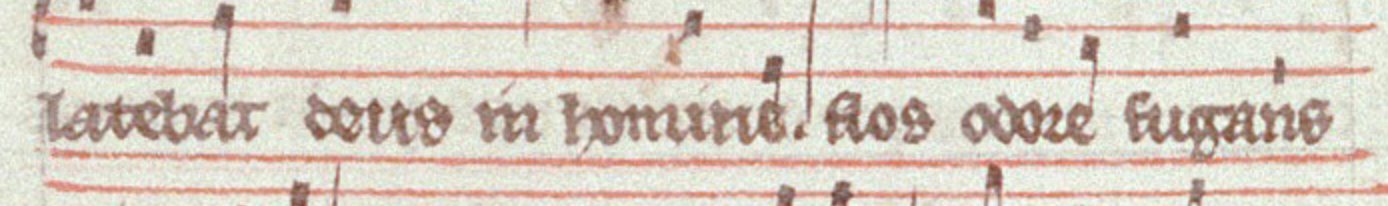 latebat deus in homine. flos odore fugans